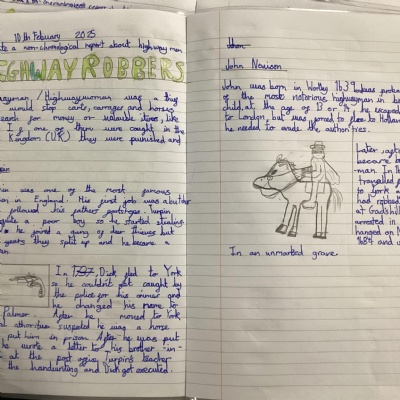 10th February 2025
te a non-chronological report about highway men
HIGHWAY ROBBERS
wayman / Highwaywoman was a
would stop carts, carriages and horses
search for money or valuable items, like
If one of them were caught in the
Kingdom (U.K) they were punished and
in was one of the most famous
en in England. His first job was a butcher
followed his father's footsteps. Turpin
quite a poor boy so he started stealing
he joined a gang of deer thieves but
years they split up and he became a
In 1737, Dick fled to York
so he couldn't get caught by
the police for his crimes and
he changed his name to
Palmer. After he moved to York
authorities suspected he was a horse
put him in prison. After he was put
he wrote a letter to his brother-in-
at the post office, Turpin's teacher
the handwriting and Dick got executed.
John Nevison
John was born in Wortley 1639
of the most notorious highwaymen in
child, at the age of 13 or 14, he escaped
to London but was forced to flee to Holland
he needed to evade the authorities.
Later, after
became a
man. In
travelled
to York
had robbed
at Gadshill
arrested in
hanged on
1684 and
In an unmarked grave.